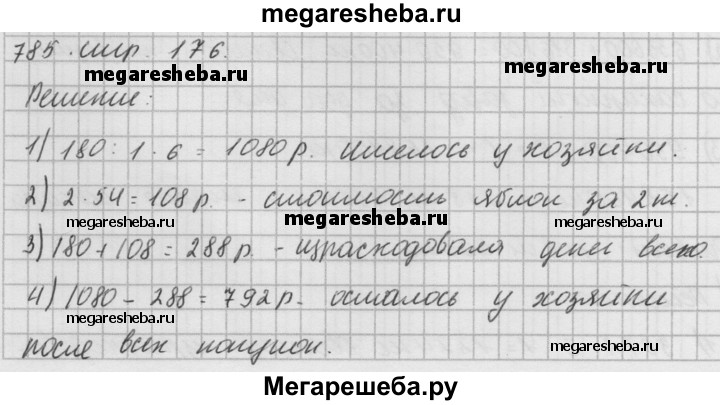 megaresheba.ru
785. стр. 176.
megaresheba.ru
megaresheba.ru
Решение:
1) 180 : 1 · 6 = 1080 р. имелось у хозяйки.
2) 2 · 54 = 108 р. - стоимость яблок за 2 кг.
megaresheba.ru
megaresheba.ru
megaresheba.ru
3) 180 + 108 = 288 р. - израсходовала денег всего.
4) 1080 - 288 = 792 р. - осталось у хозяйки
megaresheba.ru
после всех покупок.
megaresheba.ru
Мегарешеба.ру